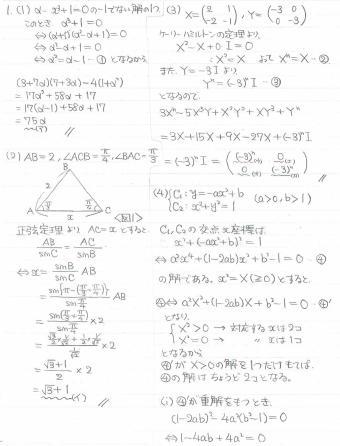 1. (1) α … x³+1=0 の -1でない解の1つ
このとき、α³+1=0
⇔(α+1)(α²-α+1)=0
⇔α²-α+1=0
⇔α²=α-1 …① となるから
(3+7α)(7+3α)-4(1+α²)
=17α²+58α+17
=17(α-1)+58α+17
=75α
(ア)
(2) AB=2, ∠ACB=π/4, ∠BAC=π/3
B
2
A x C
<図1>
正弦定理より AC=x とすると
AB/sinC = AC/sinB
⇔ x = sinB/sinC AB
= sin{π-(π/3+π/4)}/sin π/4 AB
= sin(π/3+π/4)/sin π/4 ×2
×2
= (√3+1)/2 ×2
= √3+1
(イ)
(3) X=(2 1 -2 -1), Y=(-3 0 0 -3)
ケーリーハミルトンの定理より、
X²-X+0·I=0
∴X²=X およそ Xⁿ=X …②
また、Y=-3I より
Yⁿ=(-3)ⁿI …③
となるので、
=3X+15X+9X-27X+(-3)ⁿI
=(-3)ⁿI = ((-3)ⁿ 0 0 (-3)ⁿ)
(4) C₁: y=-ax²+b
C₂: x²+y²=1 (a>0, b>1)
C₁, C₂の交点x座標は、
x²+(-ax²+b)²=1
⇔a²x⁴+(1-2ab)x²+b²-1=0 …④
の解である。x²=X(≧0)とすると、
④⇔a²X²+(1-2ab)X+b²-1=0 …④'
となり、
X>0 → 対応するxは2コ
X=0 → 〃 xは1コ
となるから
④'がX>0の解を1つだけもてば、
④の解はちょうど2コとなる。
(i) ④'が重解をもつとき、
(1-2ab)²-4a²(b²-1)=0
⇔1-4ab+4a²=0